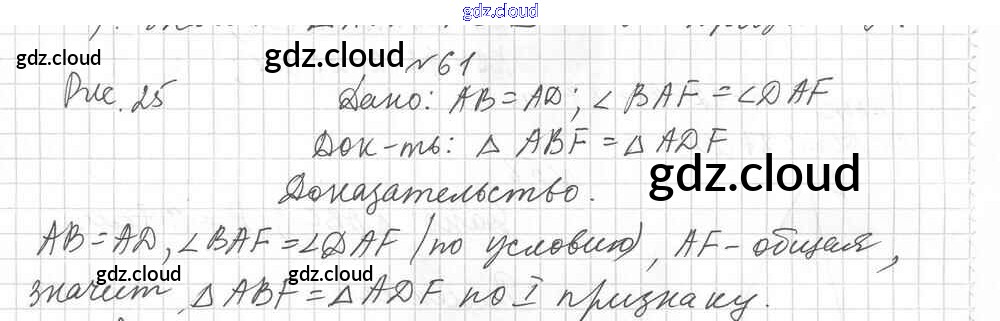 gdz.cloud
gdz.cloud gdz.cloud
№61
Рис. 25 Дано: AB=AD; ∠BAF=∠DAF
Док-ть: △ABF=△ADF
gdz.cloud
Доказательство.
AB=AD, ∠BAF=∠DAF (по условию), AF-общая,
gdz.cloud gdz.cloud
значит △ABF=△ADF по I признаку.